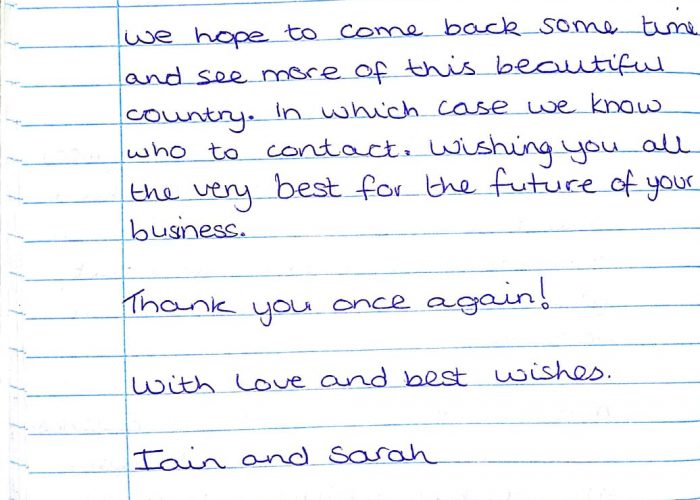 we hope to come back some time
and see more of this beautiful
country. In which case we know
who to contact. Wishing you all
the very best for the future of your
business.
Thank you once again!
With love and best wishes.
Iain and Sarah